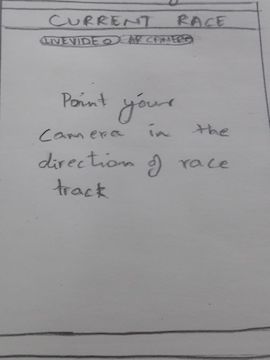 CURRENT RACE
LIVEVIDEO AR CAMERA
Point your
camera in the
direction of race
track